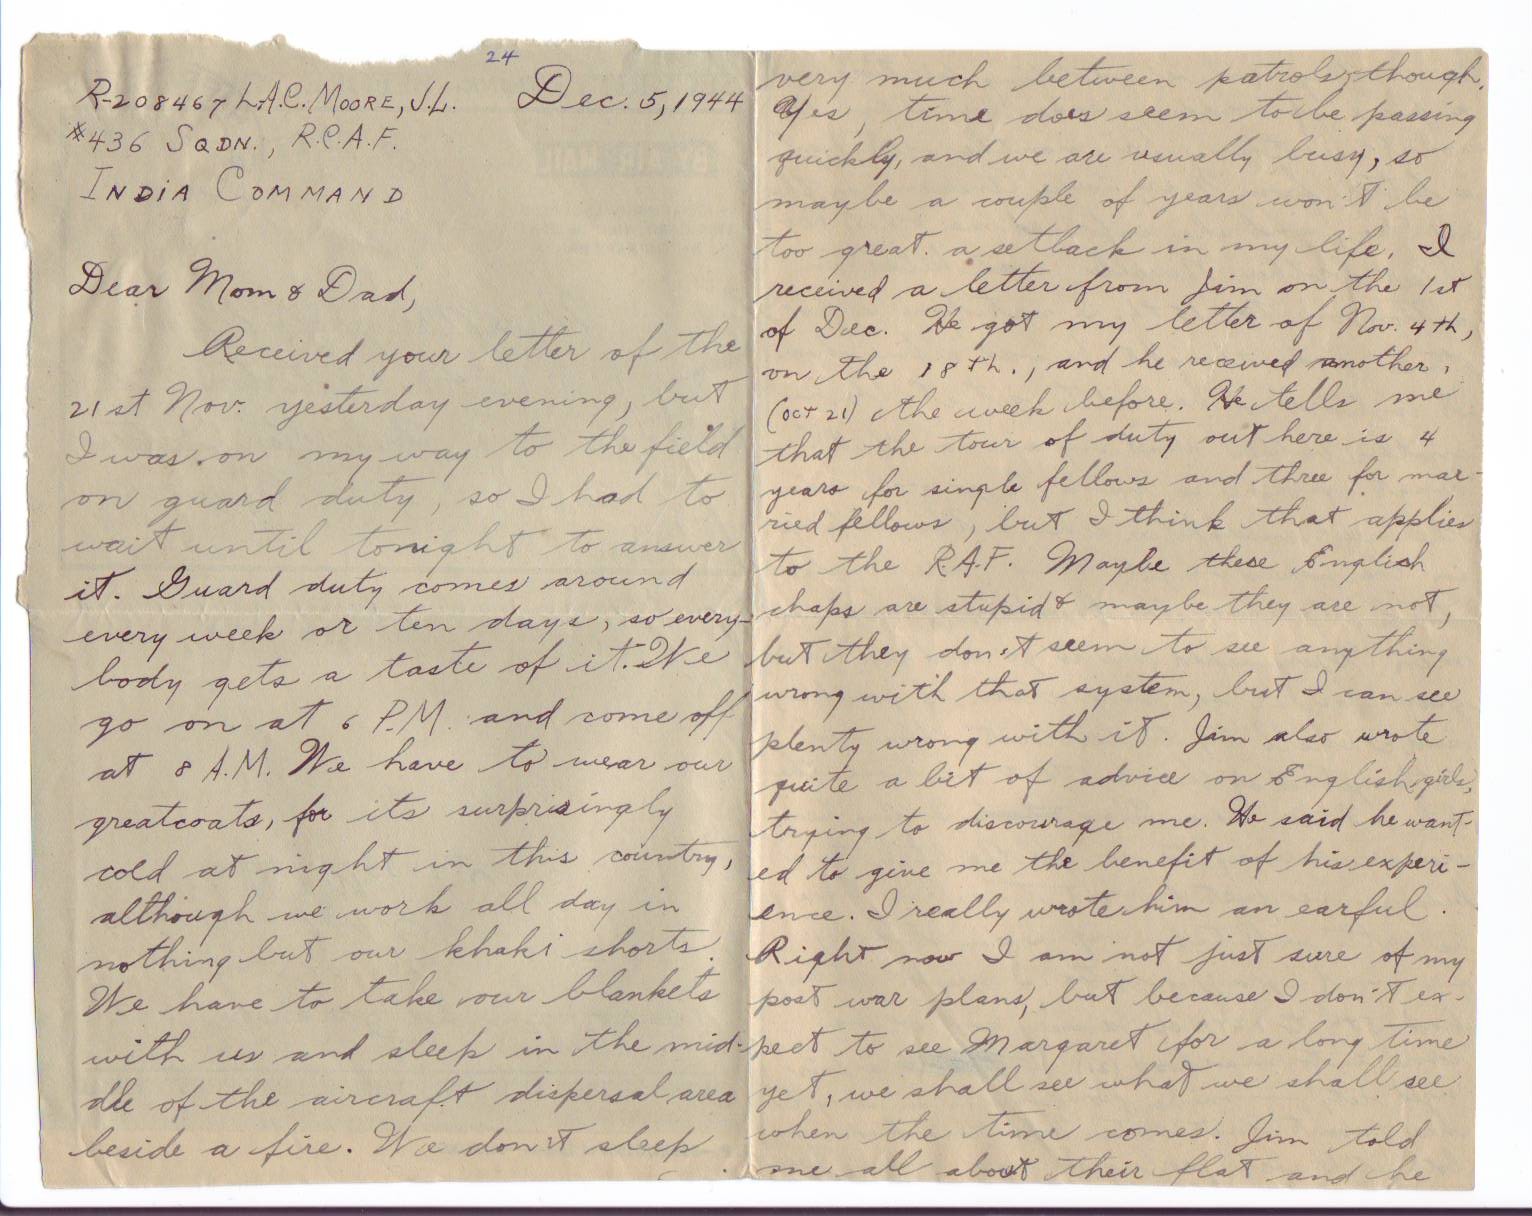 24
R-208467 L.A.C. MOORE, J.L. Dec. 5, 1944
#436 SQDN., R.C.A.F.
INDIA COMMAND
Dear Mom & Dad,
Received your letter of the
21st Nov. yesterday evening, but
I was on my way to the field
on guard duty, so I had to
wait until tonight to answer
it. Guard duty comes around
every week or ten days, so every-
body gets a taste of it. We
go on at 6 P.M. and come off
at 8 A.M. We have to wear our
greatcoats, for its surprisingly
cold at night in this country,
although we work all day in
nothing but our khaki shorts.
We have to take our blankets
with us and sleep in the mid-
dle of the aircraft dispersal area
beside a fire. We don't sleep
very much between patrols, though.
Yes, time does seem to be passing
quickly, and we are usually busy, so
maybe a couple of years won't be
too great a setback in my life. I
received a letter from Jim on the 1st
of Dec. He got my letter of Nov. 4th,
on the 18th., and he received another,
(OCT 21) the week before. He tells me
that the tour of duty out here is 4
years for single fellows and three for mar-
ried fellows, but I think that applies
to the R.A.F. Maybe these English
chaps are stupid & maybe they are not,
but they don't seem to see anything
wrong with that system, but I can see
plenty wrong with it. Jim also wrote
quite a bit of advice on English girls,
trying to discourage me. He said he want-
ed to give me the benefit of his experi-
ence. I really wrote him an earful.
Right now I am not just sure of my
post war plans, but because I don't ex-
pect to see Margaret for a long time
yet, we shall see what we shall see
when the time comes. Jim told
me all about their flat and he